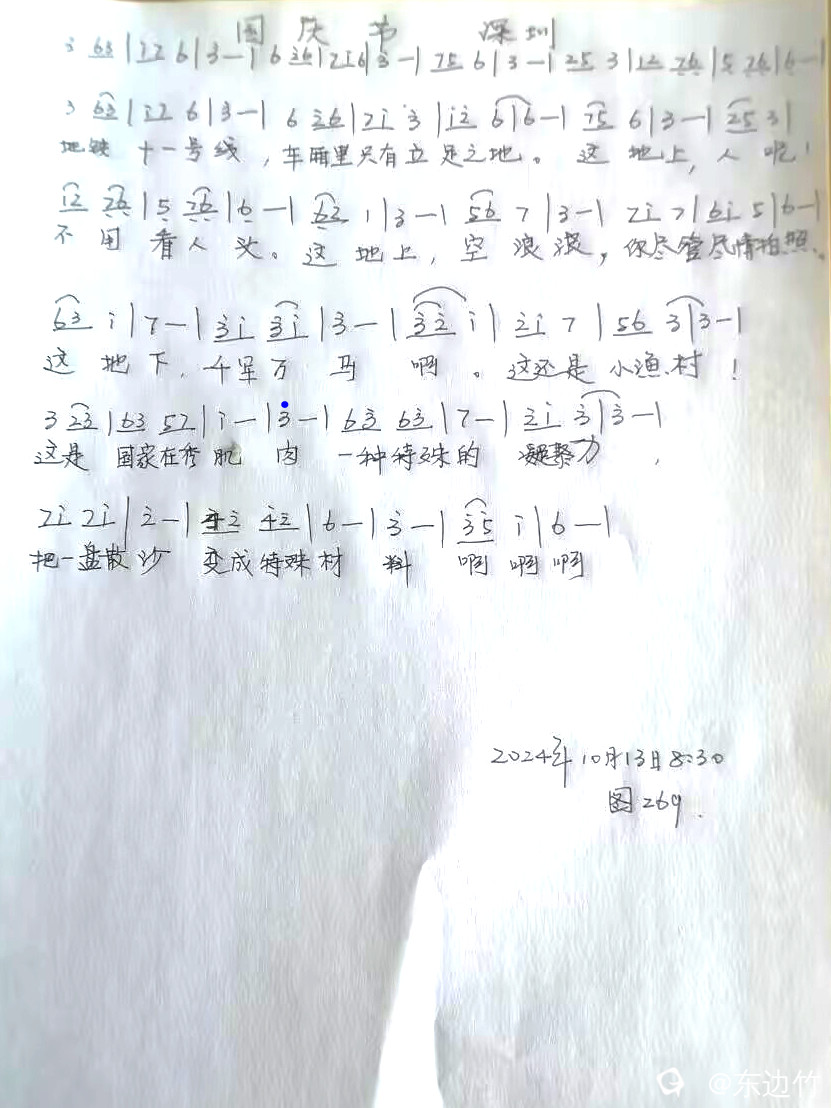 国庆节 深圳
3 63 | i7 6 | 3 — | 6 36 | 7i6 | 3 — | 75 6 | 3 — | 25 3 | 12 76 | 5 76 | 6 — |
3 63 | i7 6 | 3 — | 6 36 | 7i 3 | i2 6 | 6 — | 75 6 | 3 — | 25 3 |
地铁十一号线，车厢里只有立足之地。这地上，人呢！
i2 76 | 5 76 | 6 — | 62 1 | 3 — | 56 7 | 3 — | 7i 7 | 6i 5 | 6 — |
不用看人头。这地上，空浪浪，你尽管尽情拍照。
63 i | 7 — | 3i 3i | 3 — | 32 i | 2i 7 | 56 3 | 3 — |
这地下，千军万马啊。这还是小渔村！
3 23 | 63 57 | i — | 3 — | 63 63 | 7 — | 2i 3 | 3 — |
这是国家在秀肌肉 一种特殊的凝聚力，
7i 7i | 2 — | 42 42 | 6 — | 3 — | 35 i | 6 — |
把一盘散沙 变成特殊材料 啊啊啊
2024年10月13日8:30
图269.
@东边竹